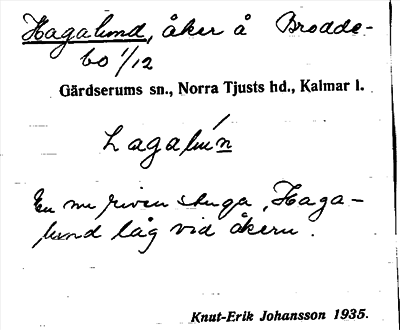 Hagalund, åker å Brodde-
bo 1/12
Gärdserums sn., Norra Tjusts hd., Kalmar l.
En nu riven stuga, Haga-
lund låg vid åkern.
Knut-Erik Johansson 1935.